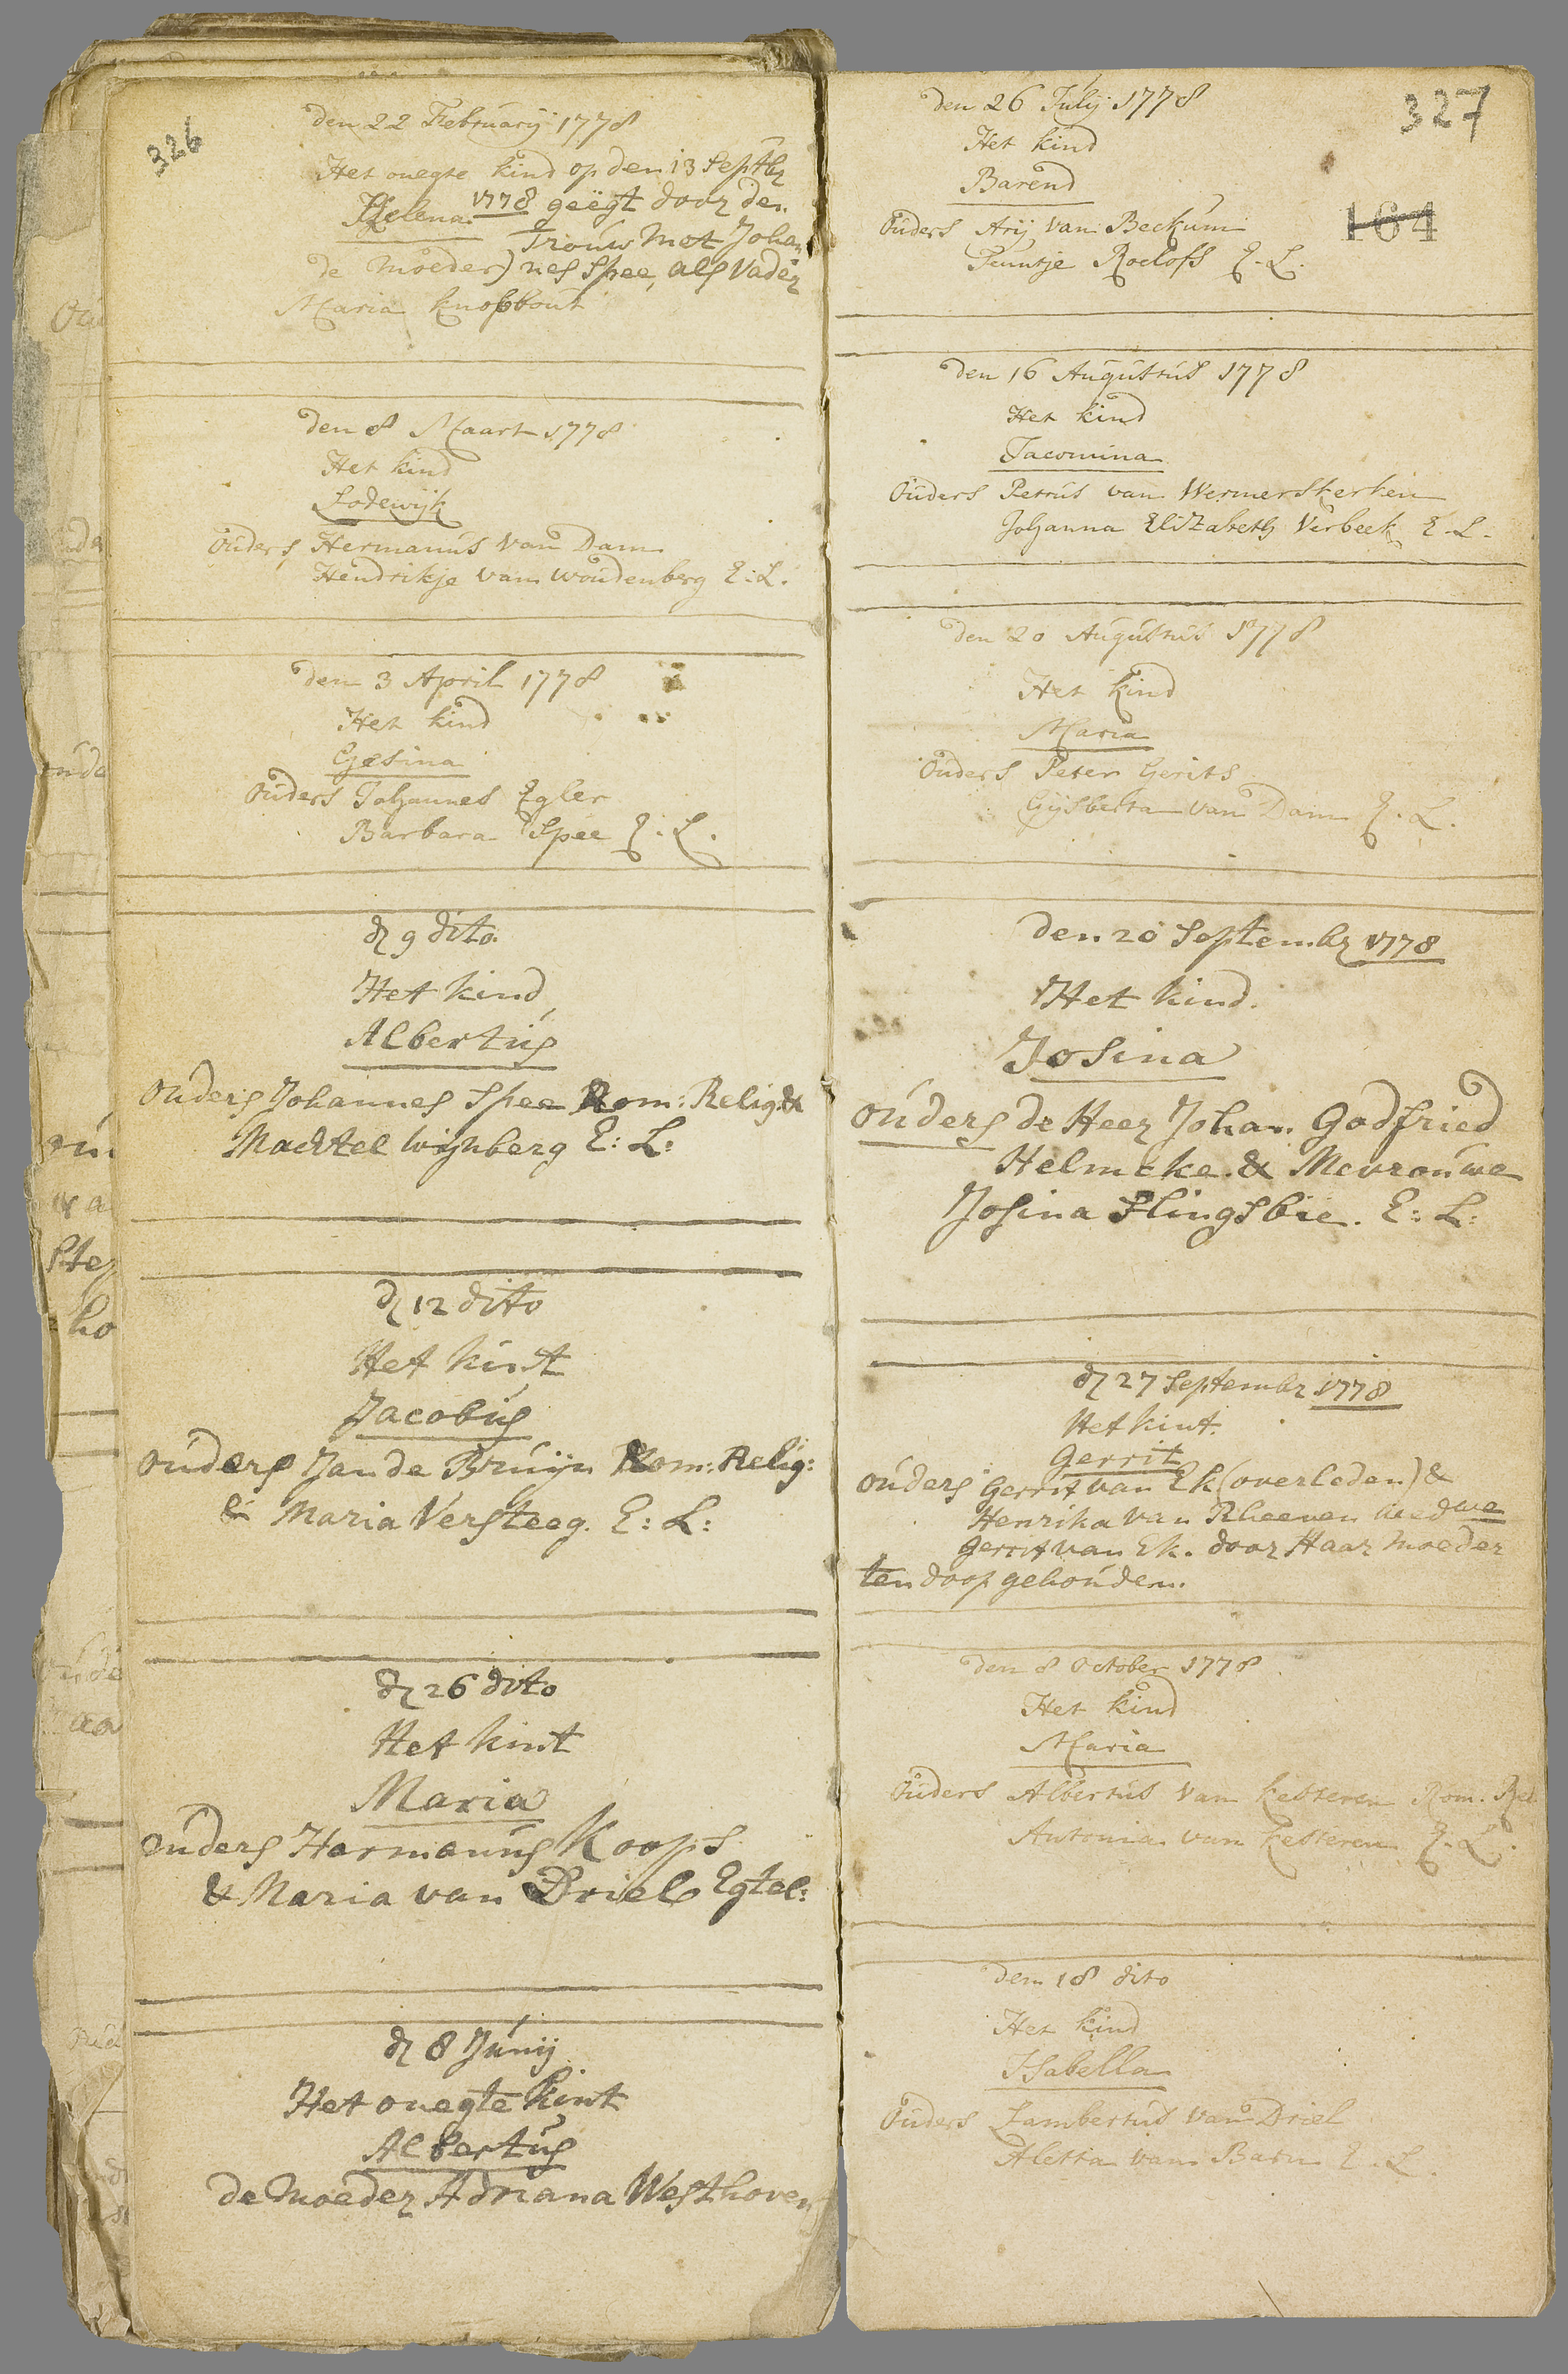 326
den 22 February 1778
Het onegte kind op den 13 Septbr
Helena 1778 geëgt door den
Trouw met Johan
de moeder) nes Spee, als Vader
Maria knopbout
den 8 Maart 1778
Het kind
Lodewijk
Ouders Hermanus van Dam
Hendrikje van Woudenberg E:L.
den 3 April 1778
Het kind
Gesina
Ouders Johannes Egler
Barbara Spee E.L.
dn 9 dito
Het kind
Albertus
Ouders Johannes Spee Rom: Relig: &
Machtel Wijnberg E:L:
dn 12 dito
Het kint
Jacobus
Ouders Jan de Bruijn Rom: Relig:
& Maria Versteeg. E:L:
dn 26 dito
Het kint
Maria
Ouders Harmanus Koops
& Maria van Driel Egtel:
dn 8 Junij
Het onegte kint
Albertus
de Moeder Adriana Westhoven
327
164
den 26 July 1778
Het kind
Barend
Ouders Arij van Beckum
Teuntje Roelofs E.L.
den 16 Augustus 1778
Het kind
Jacomina
Ouders Petrus van Wermerskerken
Johanna Elizabeth Verbeek E.L.
den 20 Augustus 1778
Het kind
Maria
Ouders Peter Gerits
Gijsberta van Dam E.L.
den 20 Septembr 1778
Het kind.
Josina
Ouders de Heer Johan Godfried
Helmcke & Mevrouwe
Josina Slingsbie. E:L:
dn 27 Septembr 1778
Het kint.
Gerrit
Ouders Gerrit van Ek (overleden) &
Henrika van Rheenen wedwe
Gerrit van Ek. door Haar moeder
ten doop gehouden.
den 8 October 1778
Het kind
Maria
Ouders Albertus van Kesteren Rom. Rel
Antonia van Kesteren E.L.
den 18 dito
Het kind
Isabella
Ouders Lambertus van Driel
Aletta van Barn E.L.